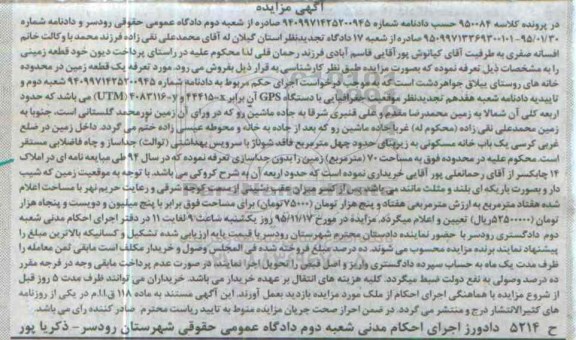 آگهی مزایده
در پرونده کلاسه ۹۵۰۰۸۴ حسب دادنامه شماره ۹۴۰۹۹۷۱۴۲۵۲۰۰۹۴۵ صادره از شعبه دوم دادگاه عمومی حقوقی رودسر و دادنامه شماره
۹۵۰۹۹۷۱۳۳۶۹۳۰۰۱۰۱-۹۵/۰۱/۳۰ صادره از شعبه ۱۷ دادگاه تجدیدنظر استان گیلان له آقای محمدعلی نقی زاده فرزند محمد با وکالت خانم
افسانه صفری به طرفیت آقای کیانوش پور آقایی قاسم آبادی فرزند رحمان قلی لذا محکوم علیه در راستای پرداخت دیون خود قطعه زمینی
را به مشخصات ذیل تعرفه نموده که بصورت مزایده طبق نظر کارشناسی به قرار ذیل بفروش می رود. مورد تعرفه یک قطعه زمین در محدوده
خانه های روستای ییلاق جواهردشت است که در درخواست اجرای حکم مربوط به دادنامه شماره ۹۴۰۹۹۷۱۴۲۵۲۰۰۹۴۵ شعبه دوم و
تاییدیه دادنامه شعبه هفدهم تجدیدنظر موقعیت جغرافیایی با دستگاه GPS آن برابر x=۴۴۴۱۵۰ و y=۴۰۸۳۱۱۶ (UTM) می باشد که حدود
اربعه کلی آن شمالا به زمین محمدرضا مقیم و علی قنبری شرقا به جاده ماشین رو که در ورای آن زمین نورمحمد گلستانی است، جنوبا به
زمین محمدعلی نقی زاده (محکوم له) غربا جاده ماشین رو که بعد از جاده به خانه و محوطه عیسی زاده ختم می گردد. داخل زمین در ضلع
غربی کرسی یک باب خانه مسکونی به زیربنای حدود چهل مترمربع فاقد شوناژ با سرویس بهداشتی (توالت) جداساز و چاه فاضلابی مستقر
است. محکوم علیه در محدوده فوق به مساحت ۷۰ (مترمربع) زمین را بدون جداسازی تعرفه نموده که در سال ۹۲ طی مبایعه نامه ای در املاک
۱۴ چابکسر از آقای رحمانعلی پور آقایی خریداری نموده است که حدود اربعه آن به شرح کروکی می باشد. با توجه به موقعیت زمین که شیب
دار و بصورت باریکه ای بلند و مثلث مانند می باشد، با مساحت اعلام
شده هفتاد مترمربع به ارزش مترمربعی هفتاد و پنج هزار تومان (۷۵۰۰۰ تومان) برای مساحت فوق برابر با پنج میلیون و دویست و پنجاه هزار
تومان (ریال) تعیین و اعلام میگردد. مزایده در مورخ ۹۵/۱۱/۱۷ روز یکشنبه ساعت ۹ لغایت ۱۱ در دفتر اجرای احکام مدنی شعبه
دوم دادگستری رودسر با حضور نماینده دادستان محترم شهرستان رودسر با قیمت پایه ارزیابی شده تشکیل و کسانیکه بالاترین مبلغ را
پیشنهاد نمایند برنده مزایده محسوب می شوند. ده درصد مبلغ فروخته شده فی المجلس وصول و خریدار مکلف است مابقی ثمن معامله را
ظرف مدت یک ماه به حساب سپرده دادگستری واریز و اصل فیش را تحویل اجرا نمایند در صورت عدم پرداخت مابقی وجه در فرجه مقرر
ده درصد وصولی به نفع دولت ضبط میگردد. کلیه هزینه های انتقال بر عهده خریدار می باشد. خریداران می توانند ظرف مدت ۵ روز قبل
از شروع مزایده با هماهنگی اجرای احکام از ملک مورد مزایده بازدید بعمل آورند. این آگهی مستند به ماده ۱۱۸ ق.ا.ا.م در یکی از روزنامه
های کثیرالانتشار درج و منتشر می گردد. در ضمن احراز صحت جریان مزایده منوط به تایید ریاست محترم صادر کننده رای می باشد.
ح ۵۲۱۴ دادورز اجرای احکام مدنی شعبه دوم دادگاه عمومی حقوقی شهرستان رودسر- ذکریا پور